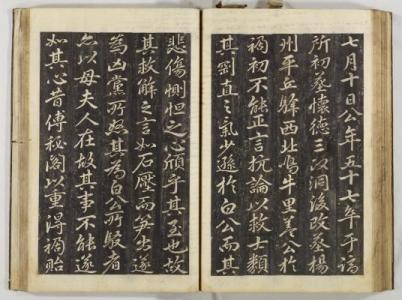 七月十日公年五十七卒于謫
所初墓懷德三汊澗後改墓楊
州平丘歸西北鳴牛里葢公於
禍初不能正言抗論以救士類
其劉直之氣少遜於白公而其
悲傷惻怛之心頎乎其至也故
其救解之言如石壓而笋出遂
為凶黨所怒其為白公所駮者
亦以母夫人在故其事不能遂
如其心昔傅秘閣以重得禍貽